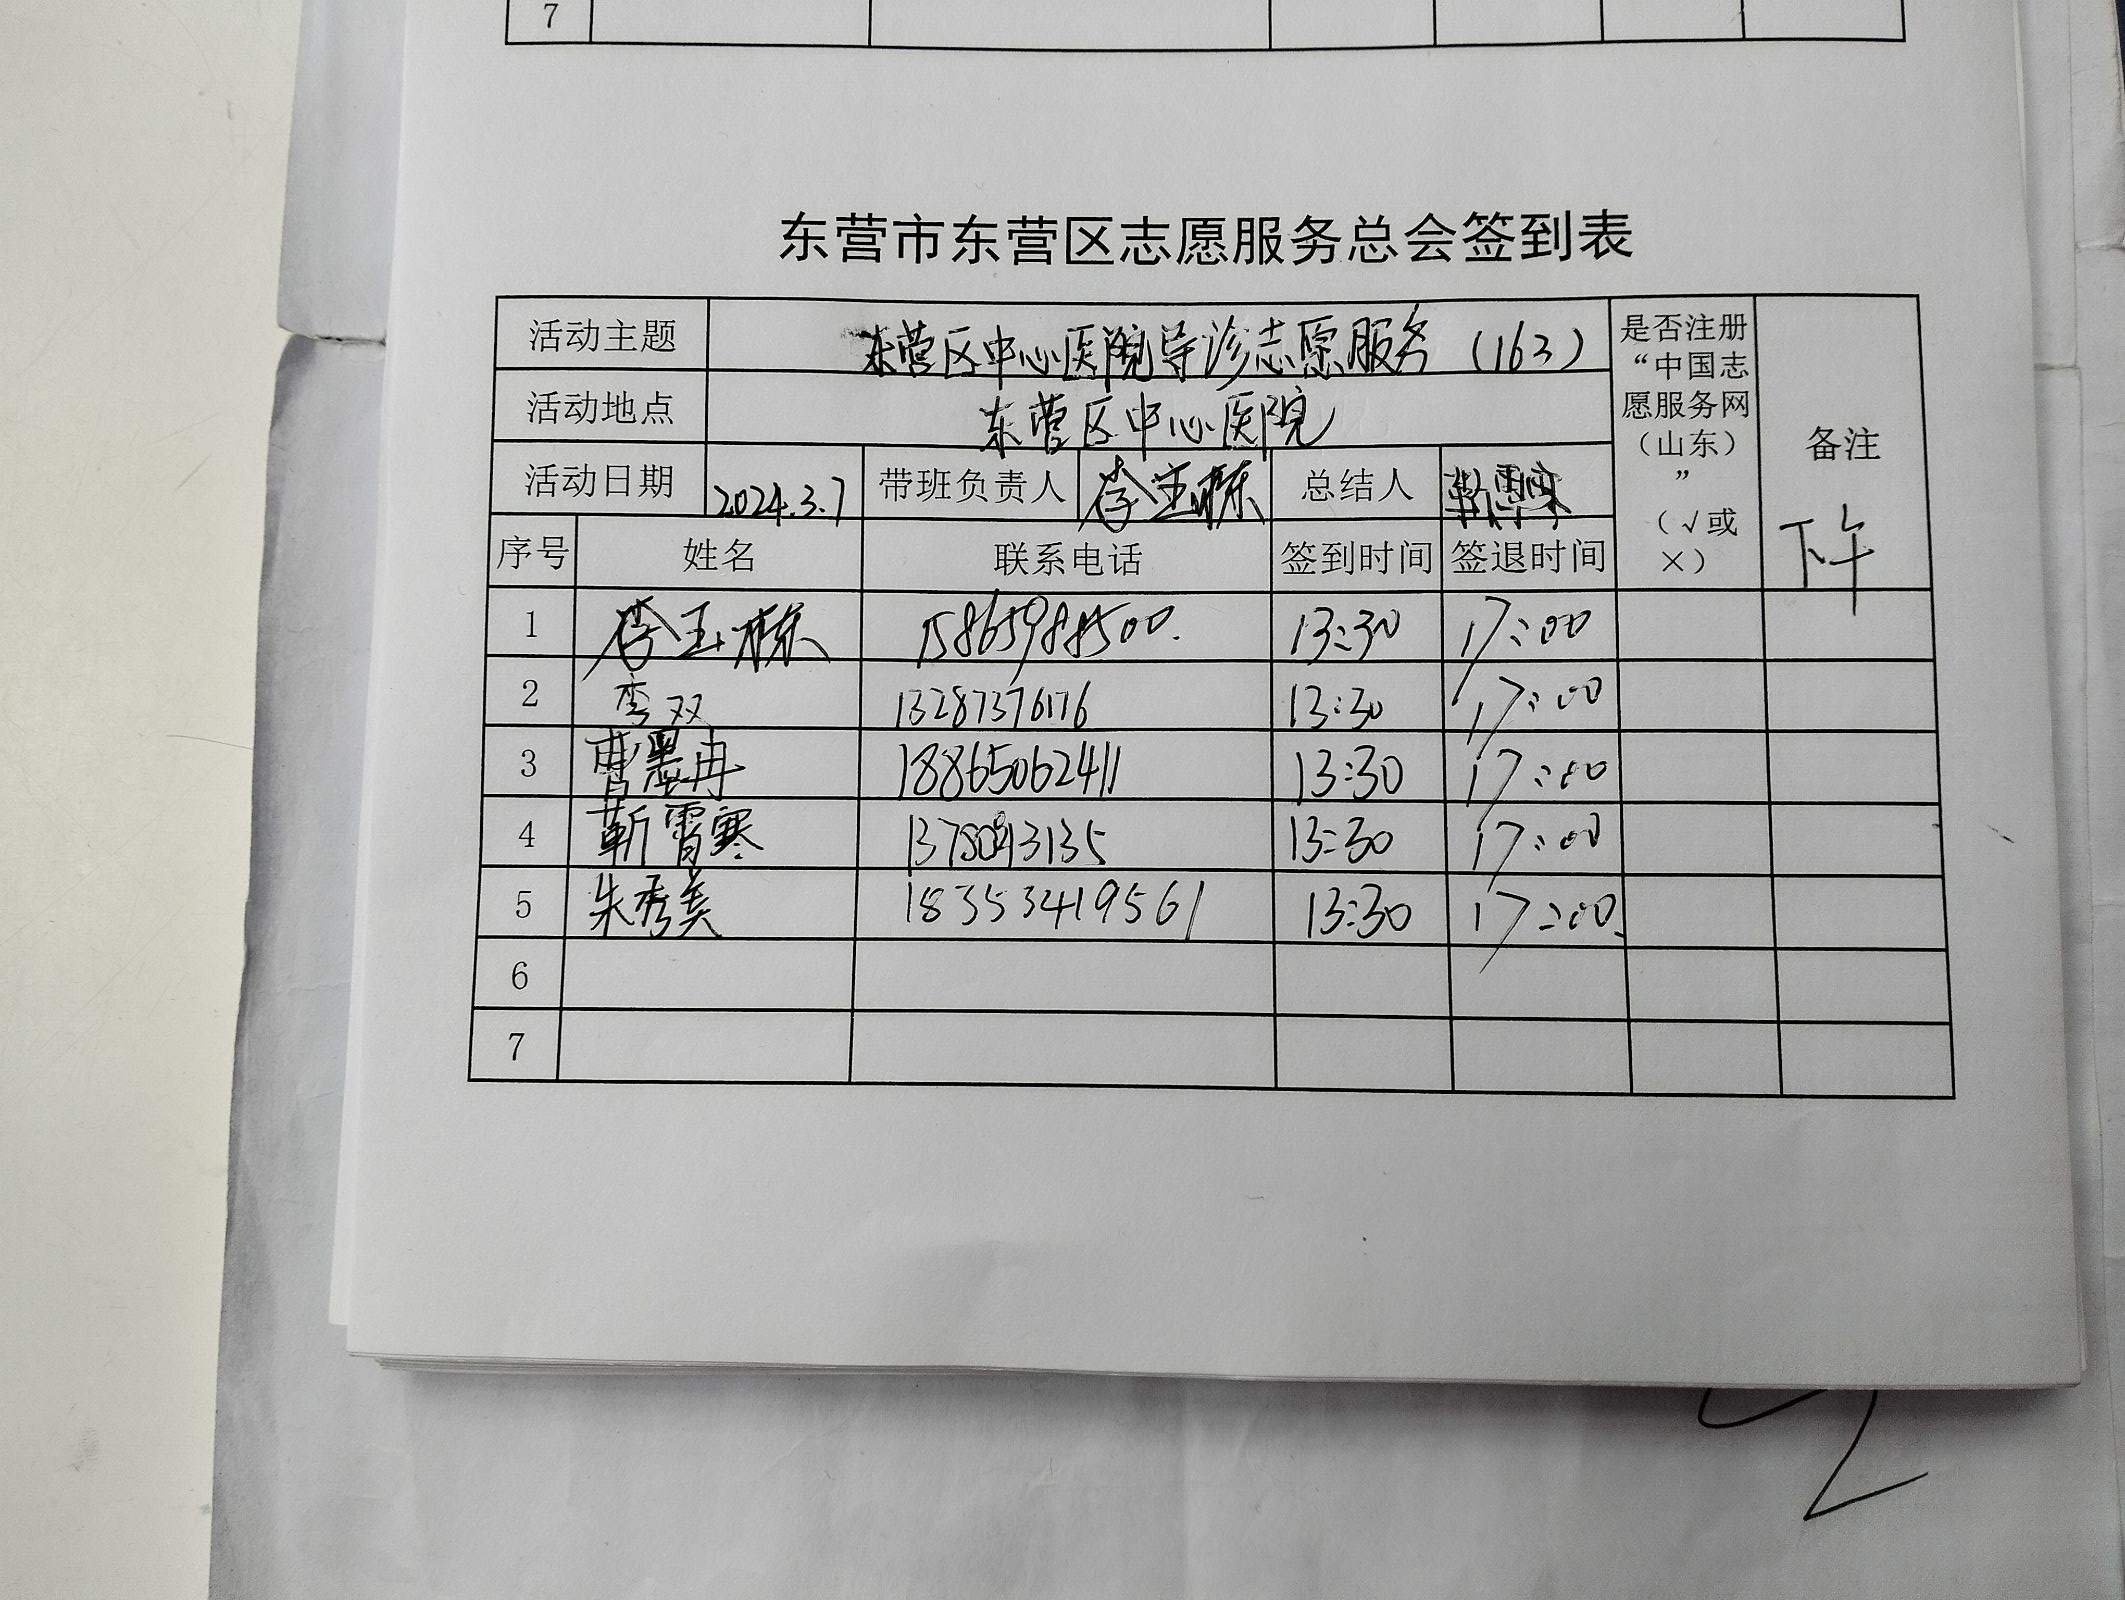 7
东营市东营区志愿服务总会签到表
活动主题 东营区中心医院导诊志愿服务（163） 是否注册“中国志愿服务网（山东）”（√或×） 备注
活动地点 东营区中心医院
活动日期 2024.3.7 带班负责人 李玉栋 总结人 靳霄寒
序号 姓名 联系电话 签到时间 签退时间 下午
1 李玉栋 15865988500. 13:30 17:00
2 李双 13287376176 13:30 17:00
3 曹墨冉 18865062411 13:30 17:00
4 靳霄寒 13:30 17:00
5 朱秀美 18353419561 13:30 17:00
6
7